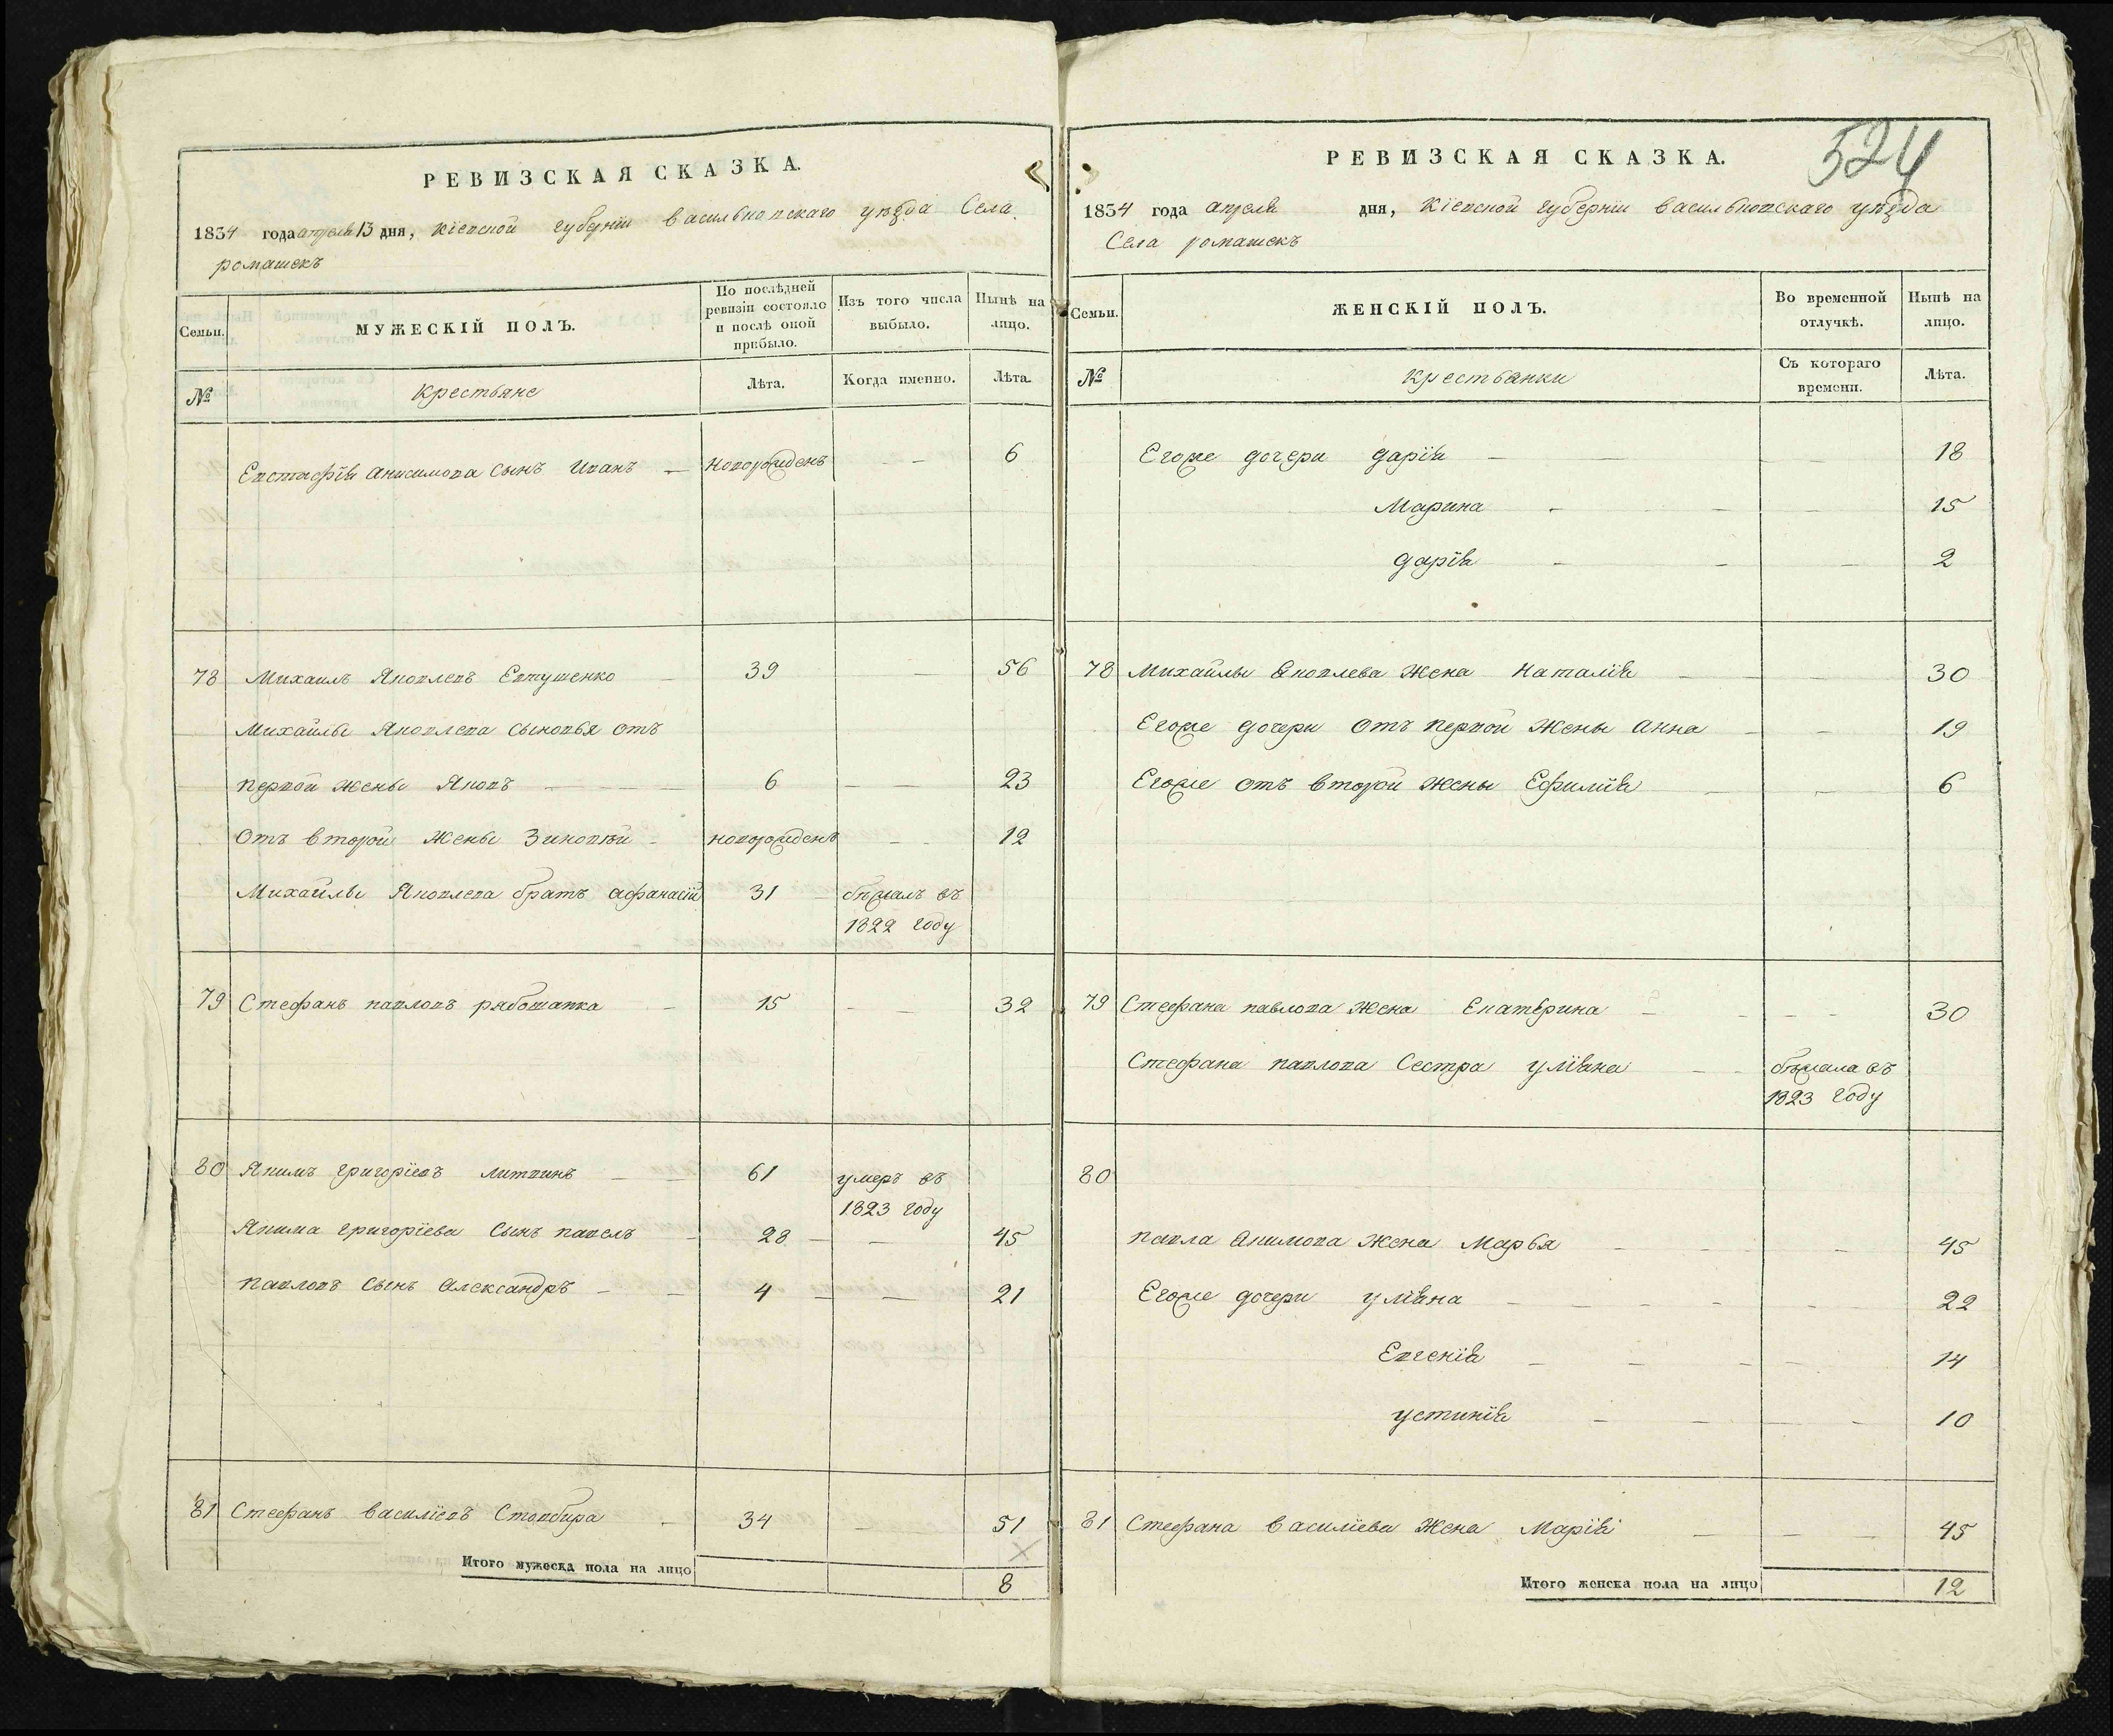 РЕВИЗСКАЯ СКАЗКА.
1834 года апреля 13 дня, Кіевской губерніи Васильковскаго уѣзда Села
ромашекъ
Семьи.
МУЖЕСКІЙ ПОЛЪ.
По послѣдней ревизіи состояло и послѣ оной прибыло.
Изъ того числа выбыло.
Нынѣ на лицо.
№
Крестьяне
Лѣта.
Когда именно.
Лѣта.
Евстафія анисимова сынъ Иванъ — новорожденъ — 6
78 Михаилъ Яковлевъ Евтушенко — 39 — 56
Михайлы Яковлева сыновья отъ
первой жены Яковъ — 6 — 23
Отъ второй жены Зиновѣй — новорожденъ — 12
Михайлы Яковлева братъ афанасій 31 бѣжалъ въ
1822 году
79 Стефанъ павловъ рябошапка — 15 — 32
80 Якимъ григоріевъ литвинъ — 61 умеръ въ
1823 году
Якима григоріева Сынъ павелъ — 28 — 45
Павловъ Сынъ Александръ — 4 — 21
81 Стефанъ василіевъ Стовбира — 34 — 51
Итого мужеска пола на лицо 8
524
РЕВИЗСКАЯ СКАЗКА.
1834 года апреля дня, Кіевской губерніи васильковскаго уѣзда
Села ромашекъ
Семьи.
ЖЕНСКІЙ ПОЛЪ.
Во временной отлучкѣ.
Нынѣ на лицо.
№
Крестьянки
Съ котораго времени.
Лѣта.
Егоже дочери дарія — 18
Марина — 15
дарія — 2
78 Михайлы Яковлева Жена Наталія — 30
Егоже дочери Отъ первой Жены анна — 19
Егоже отъ второй жены Ефимія — 6
79 Стефана павлова Жена Екатерина — 30
Стефана павлова Сестра уліяна — бѣжала въ
1823 году
80
павла Якимова Жена Марья — 45
Егоже дочери уліяна — 22
Евгенія — 14
устинія — 10
81 Стефана василіева Жена Марія — 45
Итого женска пола на лицо 12